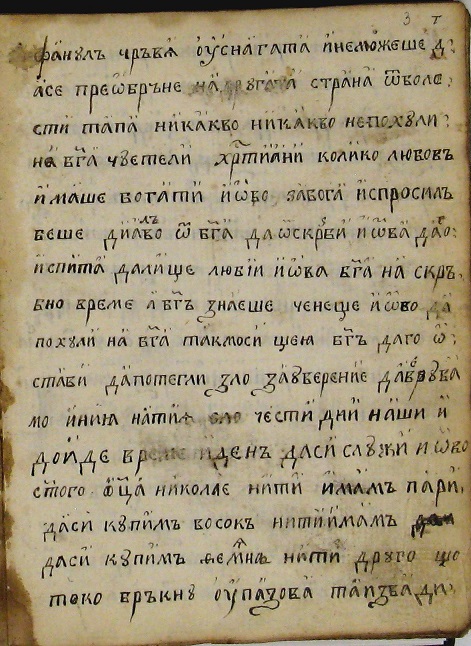 3 т
фанулъ чръвѧ оуснагата инеможеше д
асе преѡбръне надругата страна ѿболе
сти тапа никакво никакво непохули
на бг҃а чуетели хрⷭ҇тиани колико любовъ
имаше богати иѡво забога испросилъ
беше диаволъ ѿ бг҃а да ѡскръби иѡва дао
испита далище любіи иѡва бг҃а на скръ
бно време а бг҃ъ знаеше ченеще иѡво да
похули на бг҃а такмоси щею бг҃ъ даго ѡ
стави дапотегли зло зауверение даверува
мо иниѧ натиѧ чести дни наши и
дойде време иденъ даси служи иѡво
ст҃ого ѡ҃ца николае нити имамъ пари
даси купимъ восокъ нитиимамъ
даси купимъ нити друго що
токо връкну оупазова таизвади